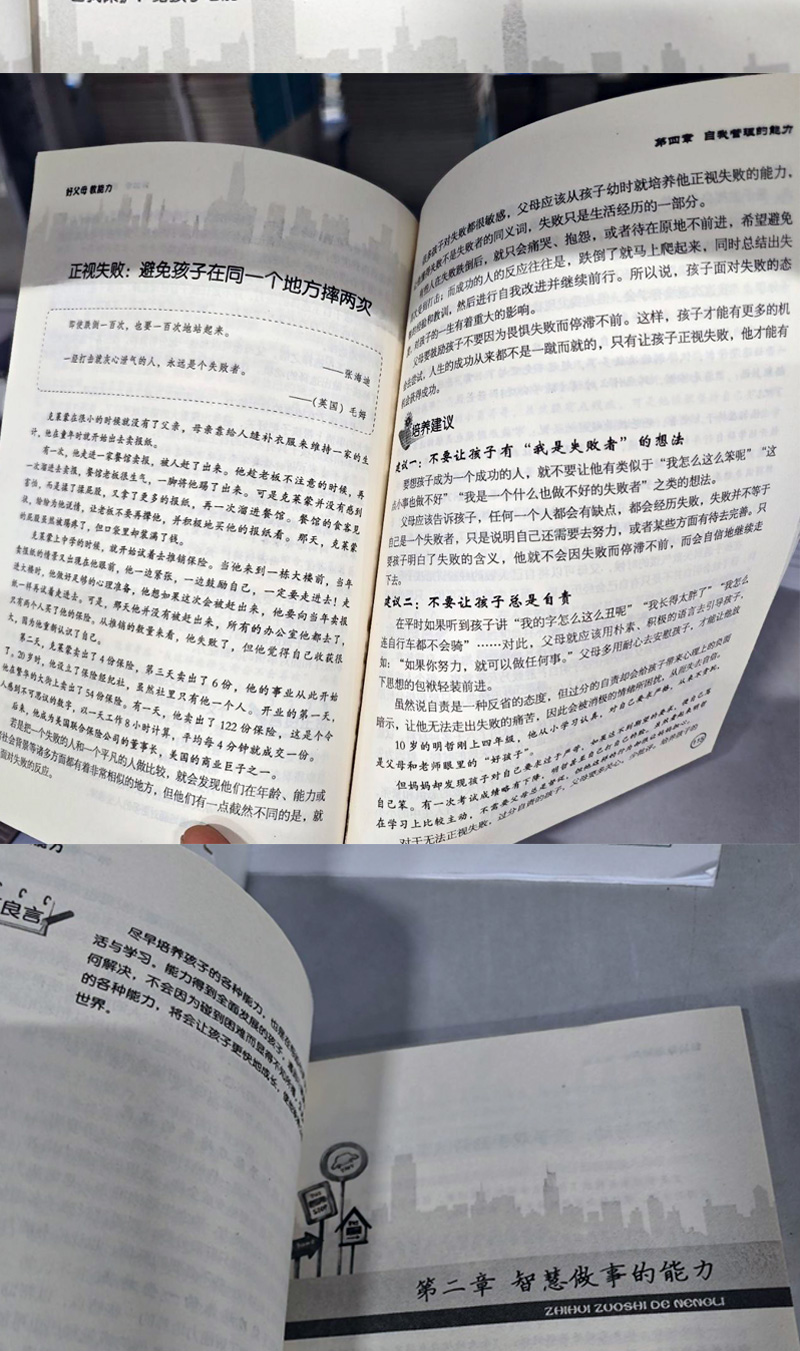 好父母 教能力
正视失败：避免孩子在同一个地方摔两次
即使跌倒一百次，也要一百次地站起来。
——张海迪
一经打击就灰心泄气的人，永远是个失败者。
——（英国）毛姆
克莱蒙在很小的时候就没有了父亲，母亲靠给人缝补衣服来维持一家的生
计，他在童年时就开始出去卖报纸。
有一次，他走进一家餐馆卖报，被人赶了出来。他趁老板不注意的时候，再
一次溜进去卖报，餐馆老板很生气，一脚将他踢了出来。可是克莱蒙并没有感到
害怕，而是揉了揉屁股，又拿了更多的报纸，再一次溜进餐馆。餐馆的食客见
状，纷纷为他说情，让老板不要再撵他，并积极地买他的报纸看。那天，克莱蒙
的屁股虽然被踢疼了，但口袋里却装满了钱。
克莱蒙上中学的时候，就开始试着去推销保险。当他来到一栋大楼前，当年
卖报纸的情景又出现在他眼前，他一边紧张，一边鼓励自己，一定要走进去！走
进大楼时，他做好足够的心理准备，他想如果这次会被赶出来，他要向当年卖报
纸一样再试着走进去。可是，那天他并没有被赶出来，所有的办公室他都去了，
只有两个人买了他的保险。从推销的数量来看，他失败了，但他觉得自己收获很
大，因为他重新认识了自己。
第二天，克莱蒙卖出了4份保险，第三天卖出了6份，他的事业从此开始
了。20岁时，他设立了保险经纪社，虽然社里只有他一个人。开业的第一天，
他在繁华的大街上卖出了54份保险。有一天，他卖出了122份保险，这是个令
人感到不可思议的数字，以一天工作8小时计算，平均每4分钟就成交一份。
后来，他成为美国联合保险公司的董事长，美国的商业巨子之一。
若是把一个失败的人和一个平凡的人做比较，就会发现他们在年龄、能力或
社会背景等诸多方面都有着非常相似的地方，但他们有一点截然不同的是，就
面对失败的反应。
第四章 自我管理的能力
多孩子对失败都很敏感，父母应该从孩子幼时就培养他正视失败的能力，
失败不是失败者的同义词，失败只是生活经历的一部分。
有些人在失败跌倒后，就只会痛哭、抱怨，或者待在原地不前进，希望避免
打击；而成功的人的反应往往是，跌倒了就马上爬起来，同时总结出失
经验和教训，然后进行自我改进并继续前行。所以说，孩子面对失败的态
对孩子的一生有着重大的影响。
父母要鼓励孩子不要因为畏惧失败而停滞不前。这样，孩子才能有更多的机
会尝试，人生的成功从来都不是一蹴而就的，只有让孩子正视失败，他才能有
机会获得成功。
培养建议
建议一：不要让孩子有“我是失败者”的想法
要想孩子成为一个成功的人，就不要让他有类似于“我怎么这么笨呢”“这
点小事也做不好”“我是一个什么也做不好的失败者”之类的想法。
父母应该告诉孩子，任何一个人都会有缺点，都会经历失败，失败并不等于
自己是一个失败者，只是说明自己还需要去努力，或者某些方面有待去完善。只
要孩子明白了失败的含义，他就不会因失败而停滞不前，而会自信地继续走
下去。
建议二：不要让孩子总是自责
在平时如果听到孩子讲“我的字怎么这么丑呢”“我长得太胖了”“我怎么
连自行车都不会骑”……对此，父母就应该用朴素、积极的语言去引导孩子，
如：“如果你努力，就可以做任何事。”父母多用耐心去安慰孩子，才能让他放
下思想的包袱轻装前进。
虽然说自责是一种反省的态度，但过分的自责却会给孩子带来心理上的负面
暗示，让他无法走出失败的痛苦，因此会被消极的情绪所困扰，从而失去自信。
10岁的明哲刚上四年级，他从小学习认真，对自己要求严格，从来不贪玩，
是父母和老师眼里的“好孩子”。
但妈妈却发现孩子对自己要求过于严苛，如果达不到预想的要求，便自己骂
自己笨。有一次考试成绩略有下降，明哲甚至自己打自己的脸。
在学习上比较主动，不需要父母总是督促，
对于无法正视失败、过分自责的孩子，父母要多关心，少批评，给孩子的
良言
尽早培养孩子的各种能力，也是在
活与学习。能力得到全面发展的孩子，
何解决，不会因为碰到困难而显得不知所措。
的各种能力，将会让孩子更快地成长，
世界。
第二章 智慧做事的能力
ZHIHUI ZUOSHI DE NENGLI